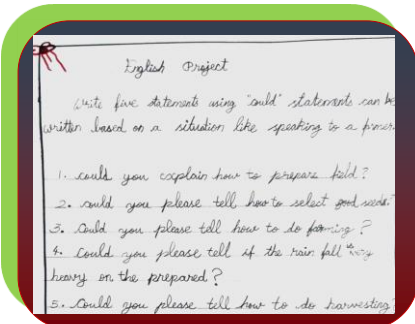 English Project
Write five statements using "could" statements can be
written based on a situation like speaking to a
1. could you explain how to prepare field?
2. could you please tell how to select good seeds?
3. Could you please tell how to do farming?
4. Could you please tell if the rain fall very
heavy on the prepared?
5. Could you please tell how to do harvesting?